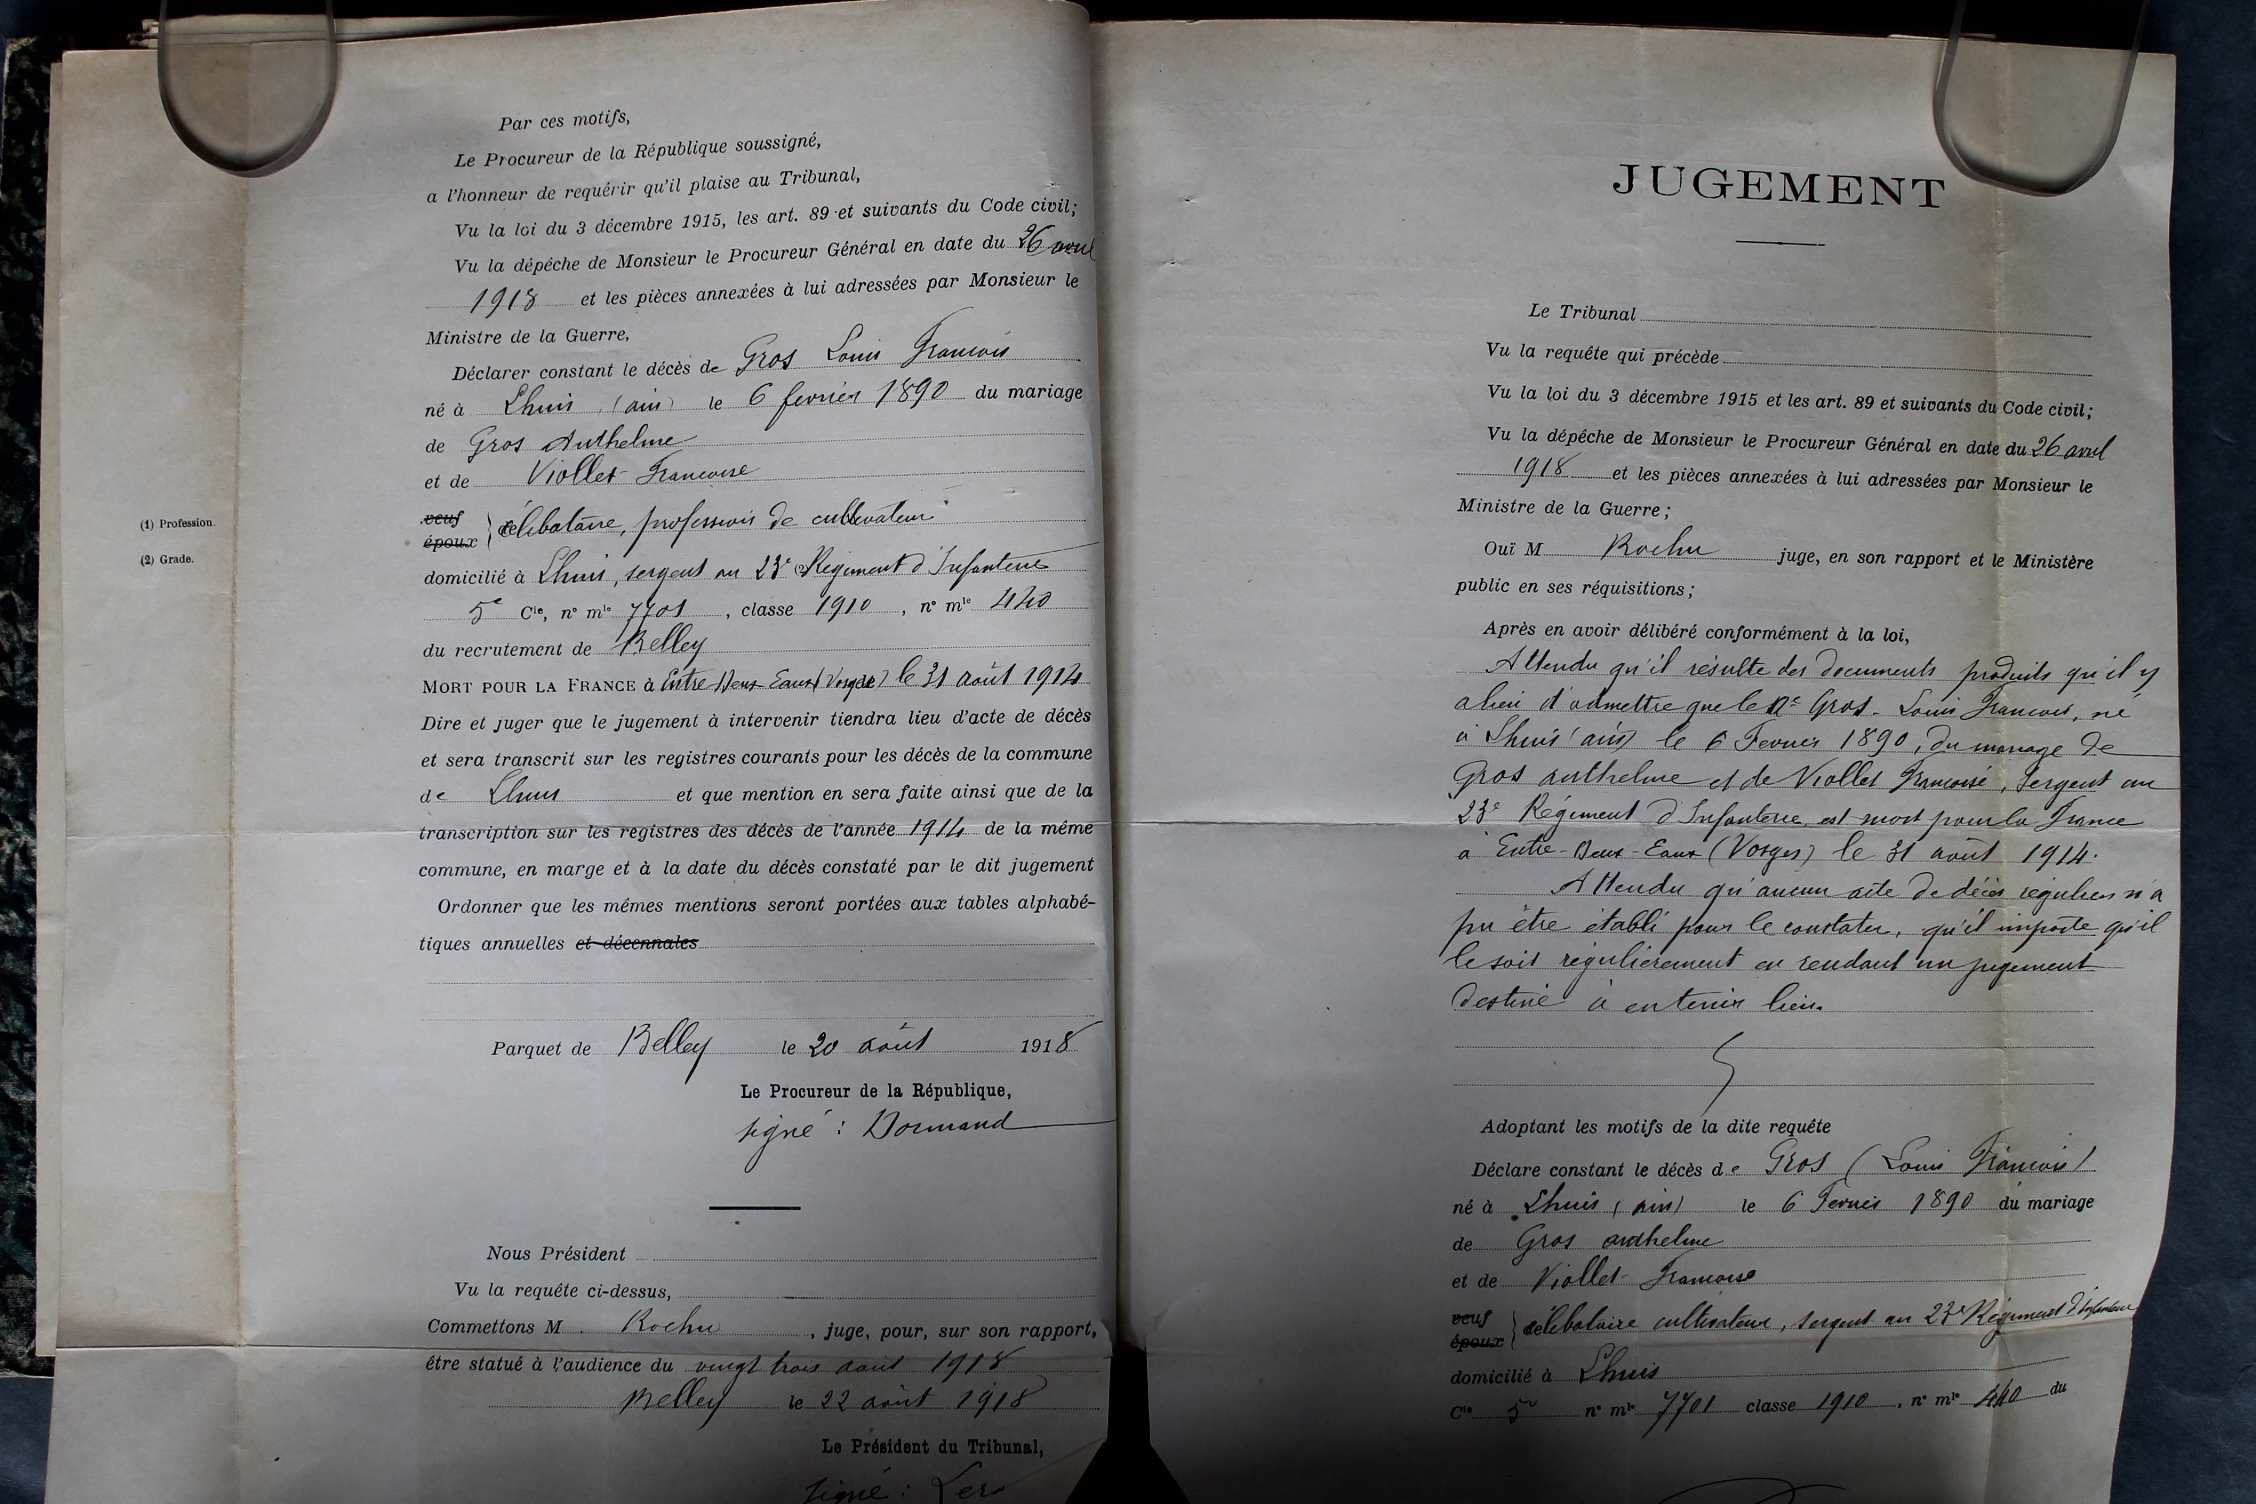 Par ces motifs,
Le Procureur de la République soussigné,
a l'honneur de requérir qu'il plaise au Tribunal,
Vu la loi du 3 décembre 1915, les art. 89 et suivants du Code civil;
Vu la dépêche de Monsieur le Procureur Général en date du 26 avril
1918 et les pièces annexées à lui adressées par Monsieur le
Ministre de la Guerre,
Déclarer constant le décès de Gros Louis Francois
né à Lhuis (ain) le 6 fevrier 1890 du mariage
de Gros Anthelme
et de Viollet Francoise
veuf
époux } célibataire, profession de cultivateur
(1) Profession.
(2) Grade.
domicilié à Lhuis, sergent au 23e Régiment d'Infanterie
5e Cie, n° mle 7701, classe 1910, n° mle 440
du recrutement de Belley
MORT POUR LA FRANCE à Entre-Deux-Eaux (Vosges) le 31 août 1914
Dire et juger que le jugement à intervenir tiendra lieu d'acte de décès
et sera transcrit sur les registres courants pour les décès de la commune
de Lhuis et que mention en sera faite ainsi que de la
transcription sur les registres des décès de l'année 1914 de la même
commune, en marge et à la date du décès constaté par le dit jugement
Ordonner que les mêmes mentions seront portées aux tables alphabé-
tiques annuelles et décennales
Parquet de Belley le 20 août 1918
Le Procureur de la République,
signé : Dormand
Nous Président
Vu la requête ci-dessus,
Commettons M. Rochu, juge, pour, sur son rapport,
être statué à l'audience du vingt trois août 1918
Belley le 22 août 1918
Le Président du Tribunal,
signé :
JUGEMENT
Le Tribunal
Vu la requête qui précède
Vu la loi du 3 décembre 1915 et les art. 89 et suivants du Code civil;
Vu la dépêche de Monsieur le Procureur Général en date du 26 avril
1918 et les pièces annexées à lui adressées par Monsieur le
Ministre de la Guerre;
Ouï M Rochu juge, en son rapport et le Ministère
public en ses réquisitions;
Après en avoir délibéré conformément à la loi,
Attendu qu'il résulte des documents produits qu'il y
a lieu d'admettre que le Gros Louis Francois, né
à Lhuis (ain) le 6 Fevrier 1890, du mariage de
Gros anthelme et de Viollet Francoise, sergent au
23e Régiment d'Infanterie, est mort pour la France
à Entre-Deux-Eaux (Vosges) le 31 août 1914.
Attendu qu'aucun acte de décès régulier n'a
pu être établi pour le constater, qu'il importe qu'il
le soit régulièrement en rendant un jugement
destiné à en tenir lieu.
Adoptant les motifs de la dite requête
Déclare constant le décès de Gros (Louis Francois)
né à Lhuis (ain) le 6 Fevrier 1890 du mariage
de Gros anthelme
et de Viollet Francoise
veuf
époux } célibataire cultivateur, sergent au 23e Régiment d'Infanterie
domicilié à Lhuis
Cie 5e n° mle 7701 classe 1910, n° mle 440 du